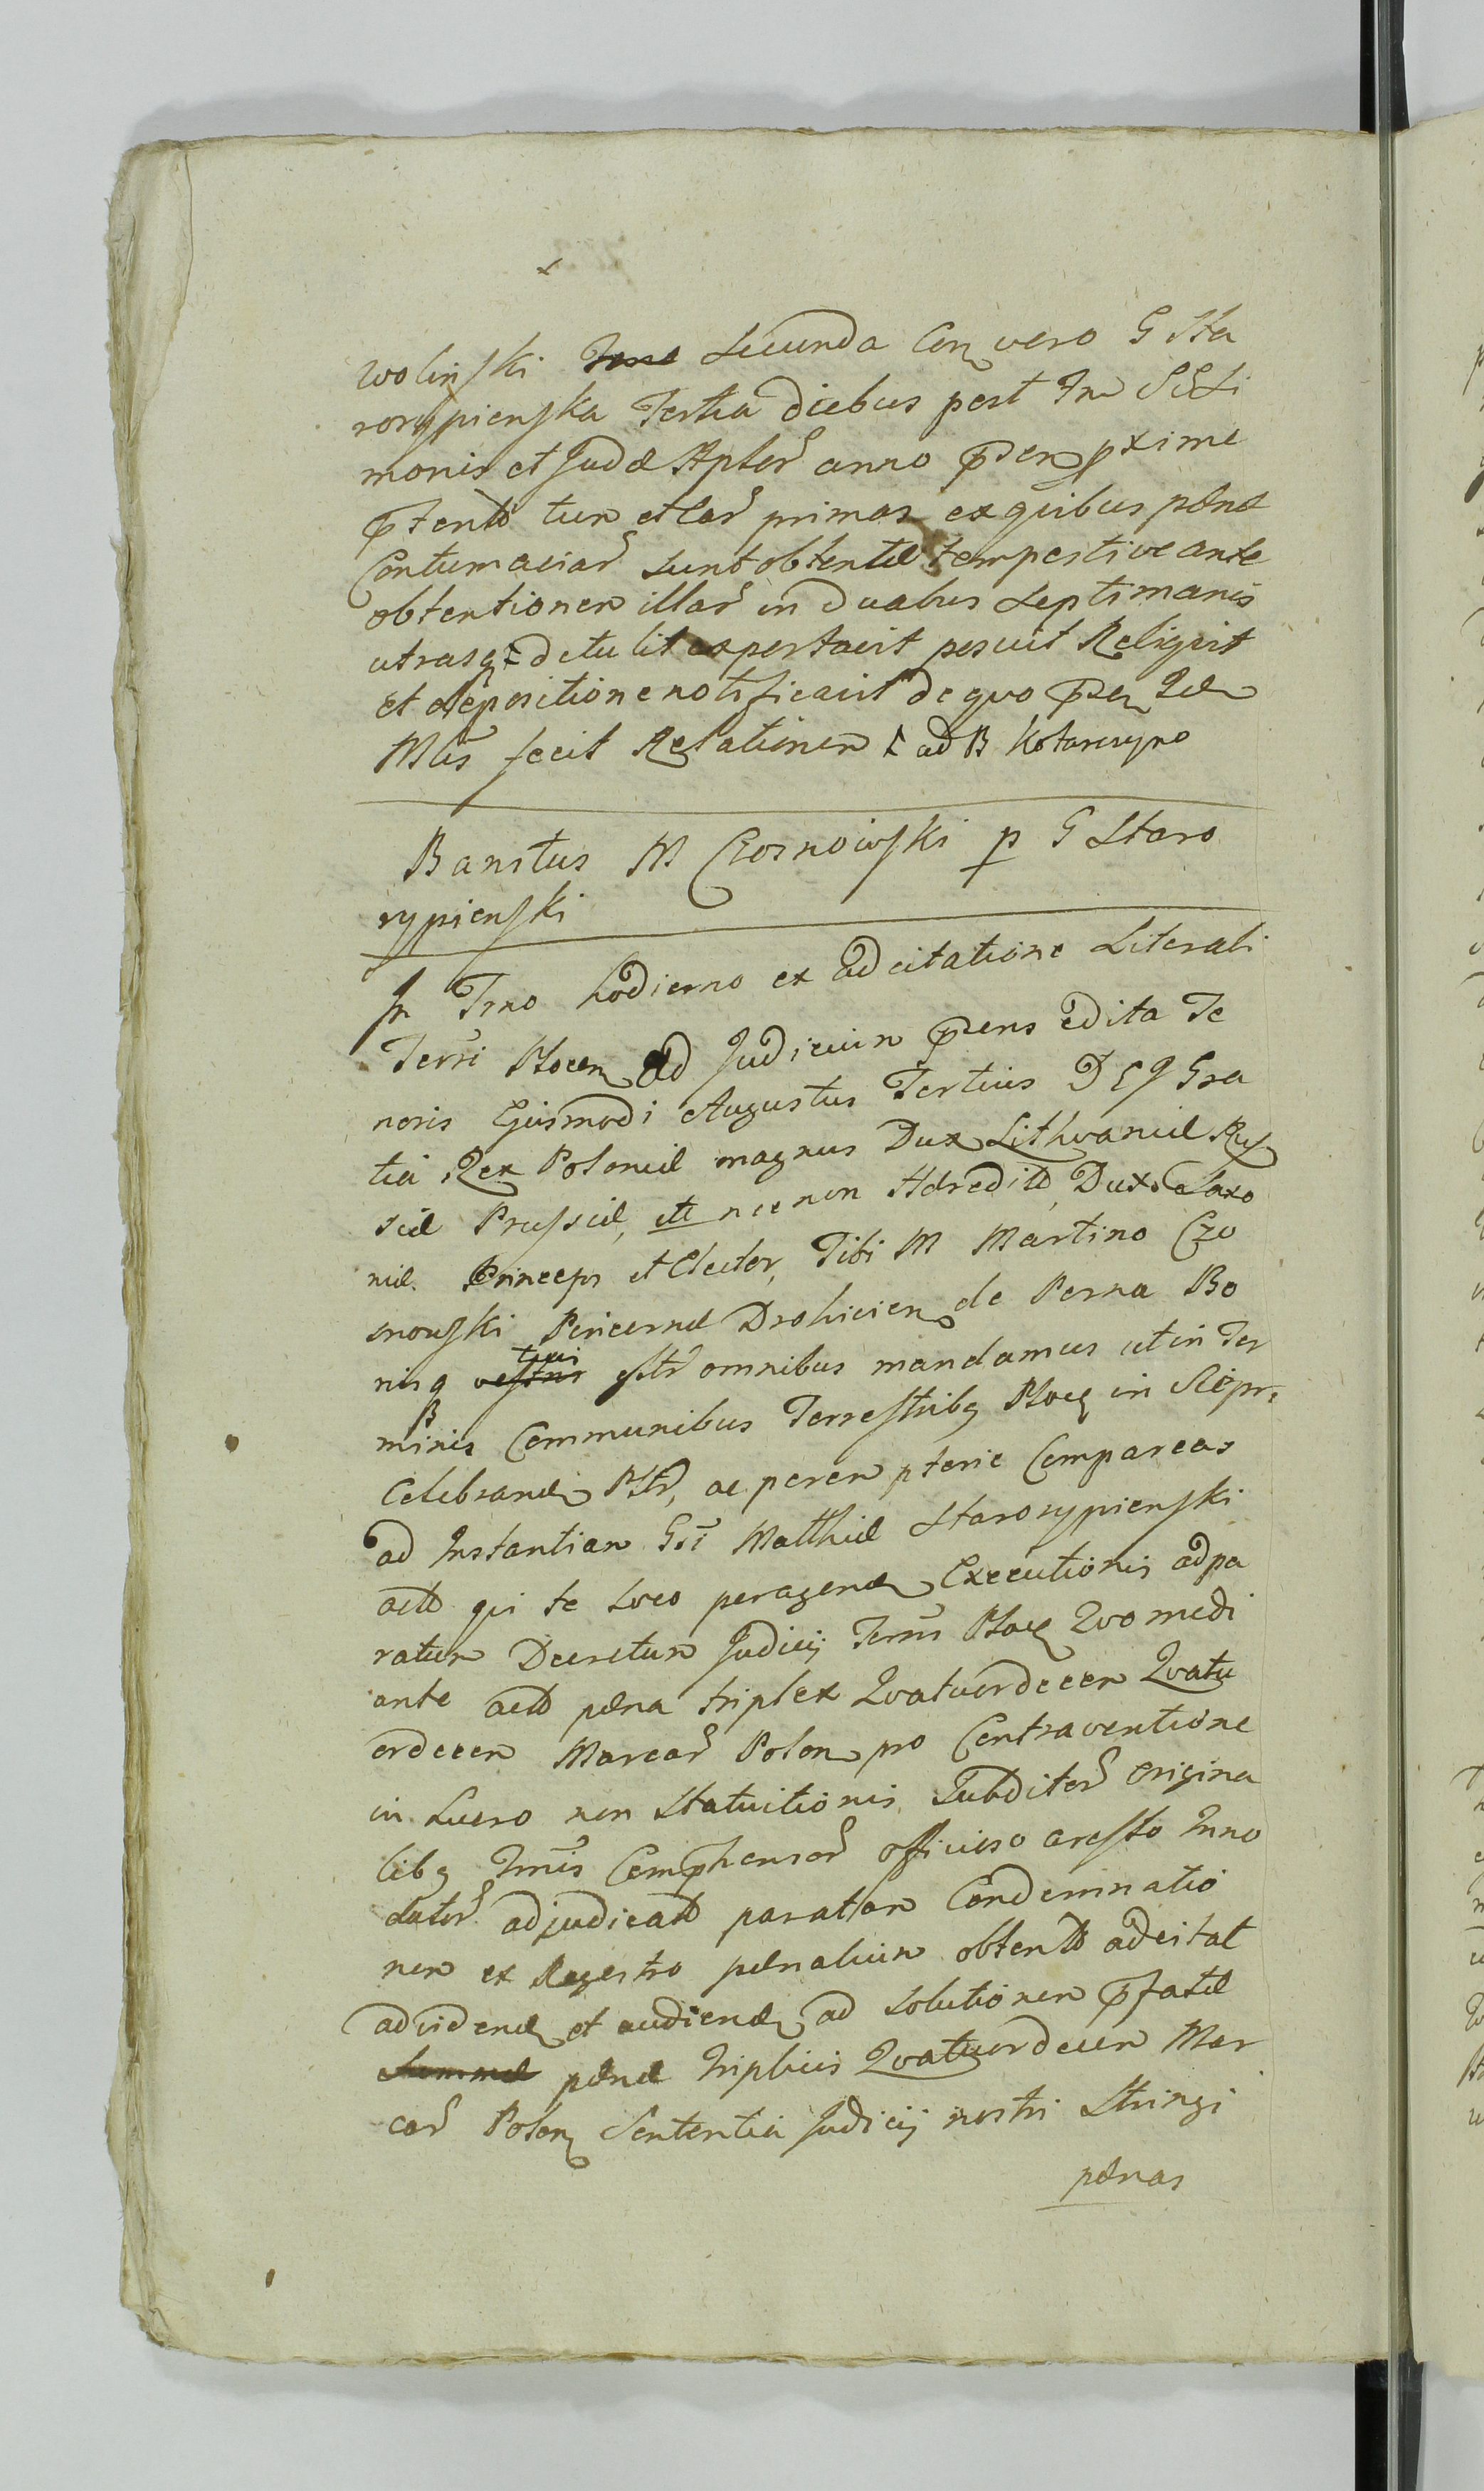 wolinſki Secunda Con vero G Sta
rorypienſka Tertia diebus post Sti Si
monis et Judæ Aplor anno pxime
tum et ear primas ex quibus pænæ
Contumaciar sunt obtentæ tempestive ante
obtentionem illar in duabus Septimanis
utrasq detulit exportavit posuit Reliquit
et depositione notificavit de quo
fecit Relationem ad B Kotarczyno
Banitus M Czosnowſki p G Staro
rypienſki
In Trno hodierno ex adcitatione Literali
Terri Plocen ad Judicium pdens edita Te
noris Ejusmodi Augustus Tertius D G Gra
tia Rex Poloniæ magnus Dux Lithvaniæ Ruſ
siæ Pruſsiæ, etc nec non Hæredit Dux Saxo
niæ Princeps et Elector, Tibi M Martino Czo
snowſki Pincernæ Drohicien de Perna Bo
nisq tui omnibus mandamus ut in Ter
minis Communibus Terreſtribq Plocq in Siepr:
Celebrand ac peremptorie Compareas
ad Instantiam Gsi Matthiæ Starorypienſki
act qui te loco peragend Executionis ad pa
ratum Decretum Judicij Terris Plocq Quo medi
ante act pæna triplex Quatuordecem Quatu
ordecem Marcar Polon pro Contraventione
in Lucro non Statuitionis Subditor origina
libq Comphensor officioso areſto Inno
dator adjudicat paratam Condemnatio
nem ex Regestro pænalium obtent adcitat
ad vidend et audiend ad solutionem pfatæ
pænæ triplicis Quatuordecem Mar
car Polon Sententia Judicij nostri Stringi
pænas